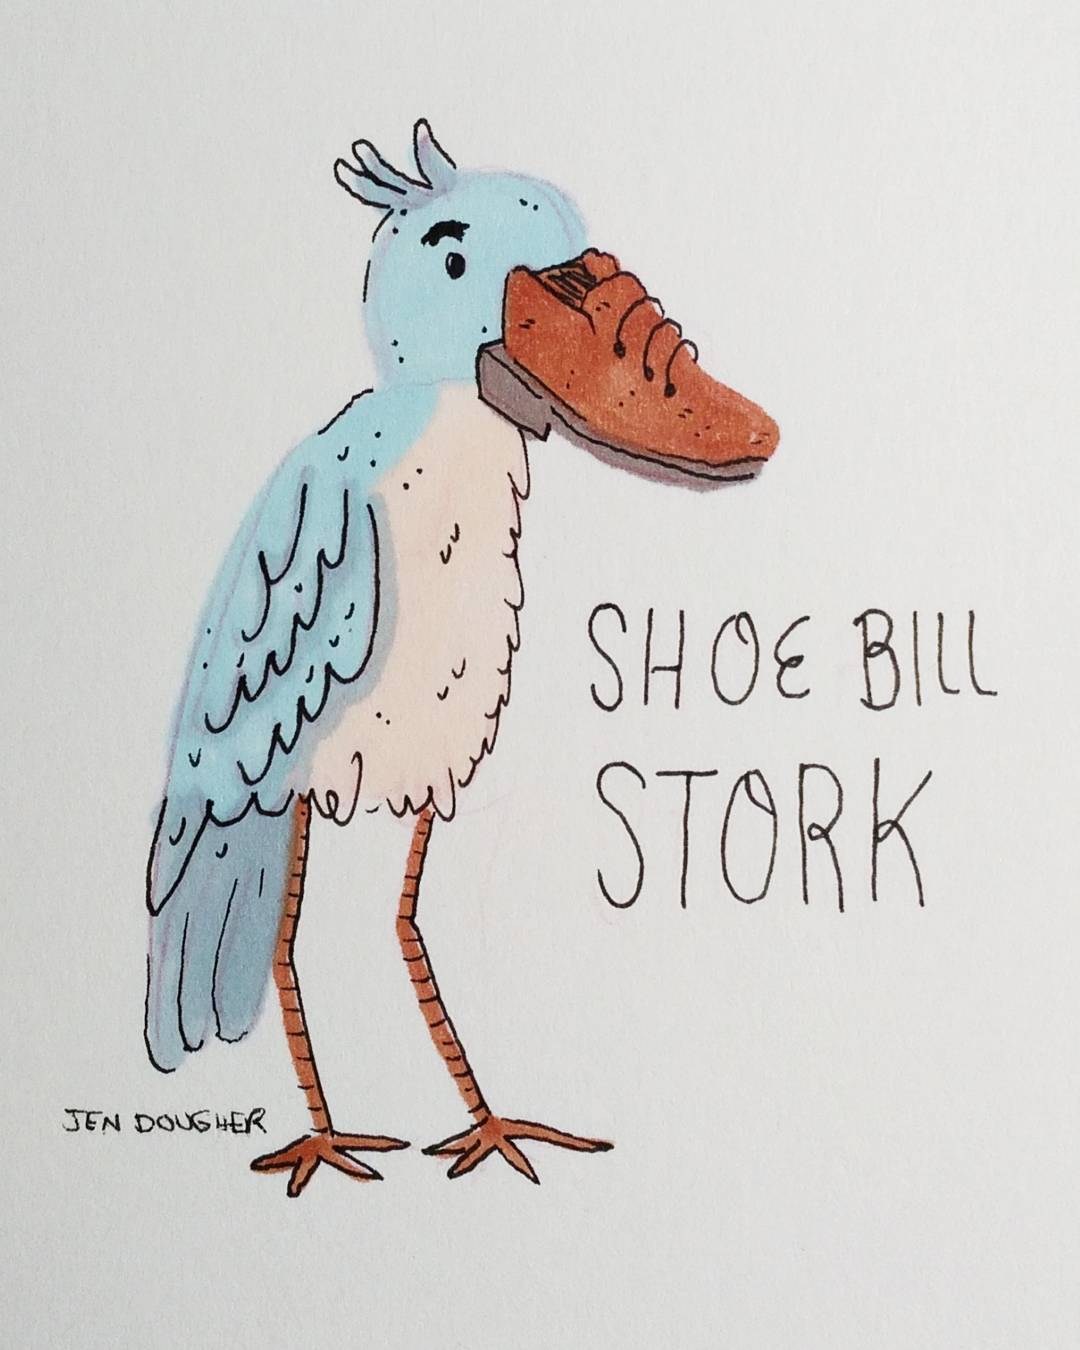 SHOE BILL
STORK
JEN DOUGHER